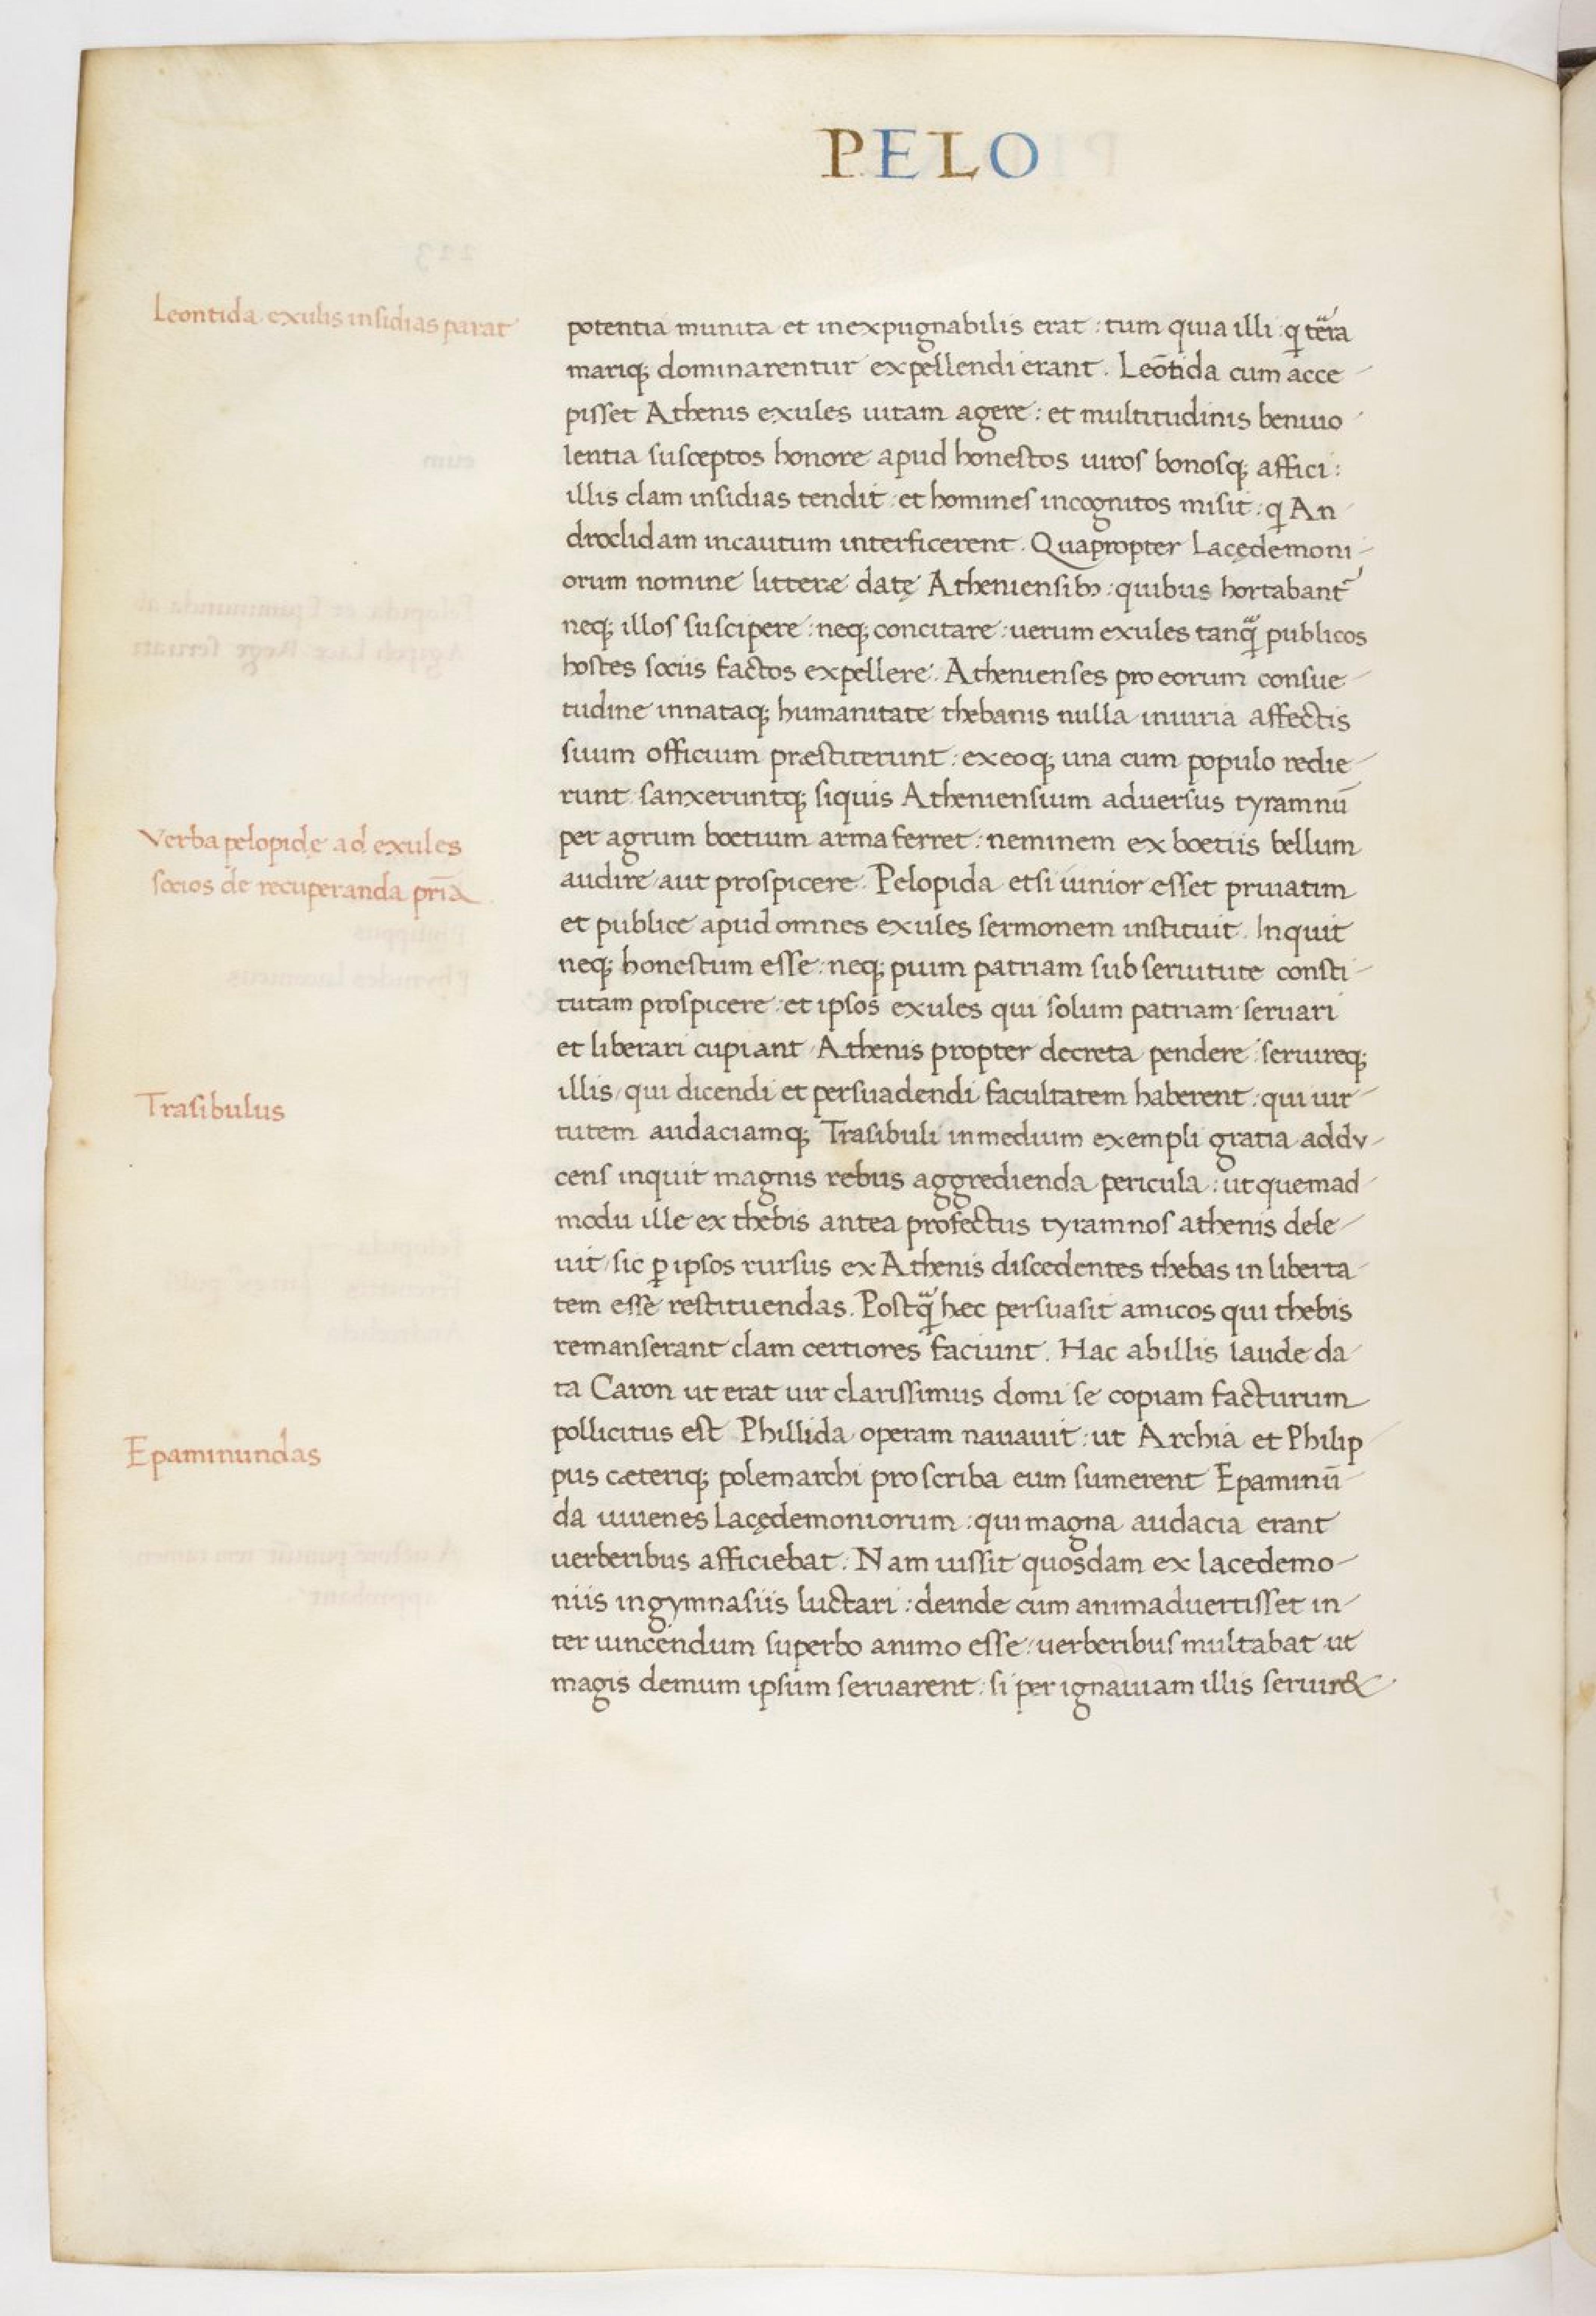 PELO
Leontida exulis insidias parat
potentia munita et inexpugnabilis erat : tum quia illi q terra
mariq; dominarentur expellendi erant . Leōtida cum acce-
pisset Athenis exules uitam agere : et multitudinis beniuo-
lentia susceptos honore apud honestos uiros bonosq; affici :
illis clam insidias tendit : et homines incognitos misit : q An-
droclidam incautum interficerent . Quapropter Lacędemoni-
orum nomine litteræ datę Atheniensibꝫ : quibus hortabant᷑
neq; illos suscipere : neq; concitare : uerum exules tanq̃ publicos
hostes sociis factos expellere . Athenienses pro eorum consue-
tudine innataq; humanitate thebanis nulla iniuria affectis
suum officium præstiterunt : ex eoq; una cum populo redie-
runt sanxeruntq; siquis Atheniensium aduersus tyramnū
per agrum boetium arma ferret : neminem ex boetiis bellum
Verba pelopidę ad exules
socios de recuperanda prīa
audire aut prospicere . Pelopida etsi iunior esset priuatim
et publice apud omnes exules sermonem instituit . Inquit
neq; honestum esse : neq; pium patriam sub seruitute consti-
tutam prospicere : et ipsos exules qui solum patriam seruari
et liberari cupiant Athenis propter decreta pendere : seruireq;
Trasibulus
illis / qui dicendi et persuadendi facultatem haberent : qui uir-
tutem audaciamq; Trasibuli in medium exempli gratia addu-
cens inquit magnis rebus aggredienda pericula : ut quemad-
modu ille ex thebis antea profectus tyramnos athenis dele-
uit / sic ꝑ ipsos rursus ex Athenis discedentes thebas in liberta-
tem esse restituendas . Postq̃ hec persuasit amicos qui thebis
remanserant clam certiores faciunt . Hac ab illis laude da-
ta Caron ut erat uir clarissimus domi se copiam facturum
pollicitus est Phillida operam nauauit : ut Archia et Philip-
Epaminundas
pus cæteriq; polemarchi pro scriba eum sumerent Epaminū-
da iuuenes Lacędemoniorum : qui magna audacia erant
uerberibus afficiebat . Nam iussit quosdam ex lacedemo-
niis in gymnasiis luctari : deinde cum animaduertisset in-
ter uincendum superbo animo esse : uerberibus multabat ut
magis demum ipsum seruarent : si per ignauiam illis seruir&